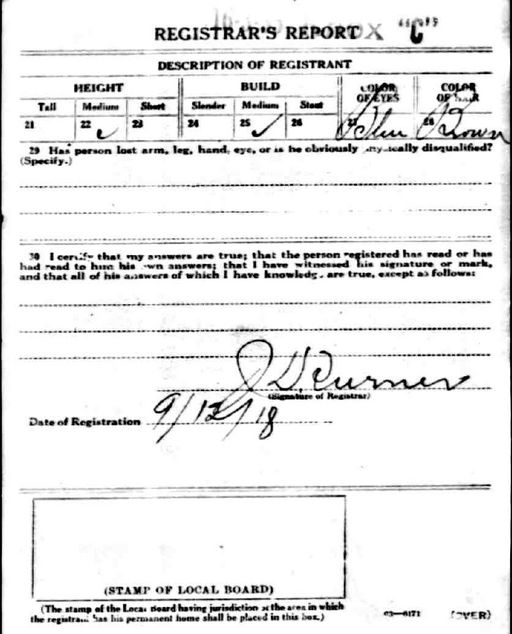 REGISTRAR'S REPORT "C"
DESCRIPTION OF REGISTRANT
HEIGHT BUILD COLOR OF EYES COLOR OF HAIR
Tall Medium Short Slender Medium Stout
21 22 ✓ 23 24 25 ✓ 26 27 Blue 28 Brown
29 Has person lost arm, leg, hand, eye, or is he obviously physically disqualified?
(Specify.)
30 I certify that my answers are true; that the person registered has read or has
had read to him his own answers; that I have witnessed his signature or mark,
and that all of his answers of which I have knowledge are true, except as follows:
J D. Turner
(Signature of Registrar)
Date of Registration 9/12/18
(STAMP OF LOCAL BOARD)
(The stamp of the Local Board having jurisdiction of the area in which
the registrant has his permanent home shall be placed in this box.)
03—6171 (OVER)